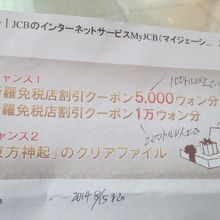 | JCBのインターネットサービスMyJCB(マイジェーシ
ャンス1
100ドル以上
羅免税店割引クーポン5,000ウォン分
羅免税店割引クーポン1万ウォン分
ャンス2
200ドル以上
東方神起」のクリアファイル
〜2014.8/15まで